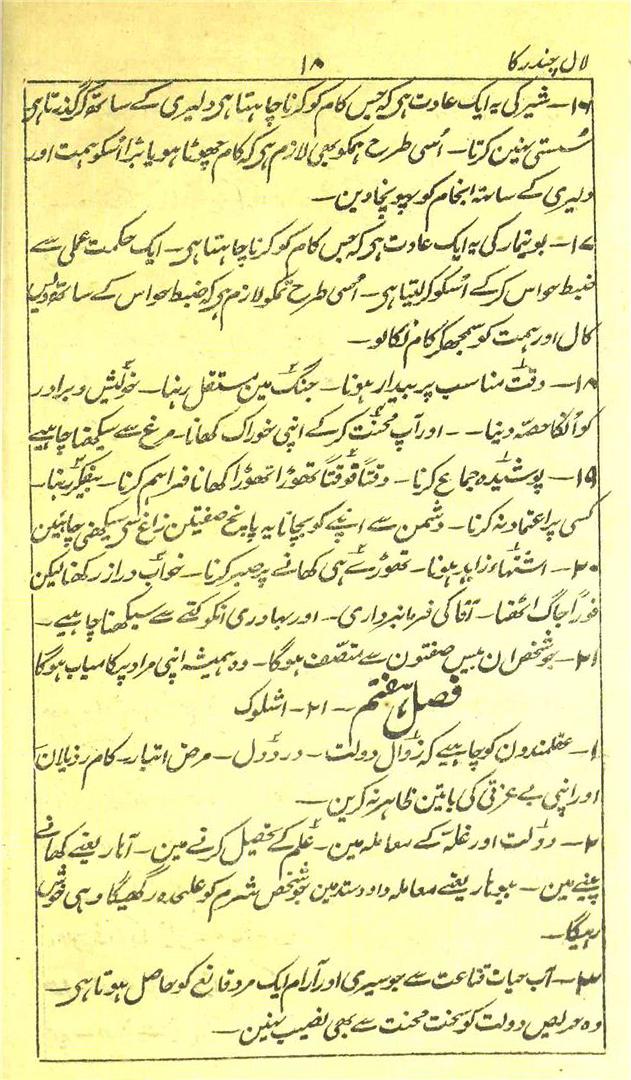 لال چندرکا ۱۸
۱۶۔ شیر کی یہ ایک عادت ہی کہ جس کام کو کرنا چاہتا ہی دلیری کے ساتھ کر گذرتا ہی
سُستی نہین کرتا۔ اُسی طرح ہمکو بھی لازم ہی کہ کام چھوٹا ہو یا بڑا اُسکو ہمت اور
دلیری کے ساتہ انجام کو پہونچادین۔
۱۷۔ بوتیمار کی یہ ایک عادت ہی کہ جس کام کو کرنا چاہتا ہی۔ ایک حکمت عملی سے
ضبط حواس کر کے اُسکو کر لیتا ہی۔ اُسی طرح تمکو لازم ہی کہ ضبط حواس کے ساتھ دیس
کال اور ہمت کو سمجھکر کام نکالو۔
۱۸۔ وقت مناسب پر بیدار ہونا۔ جنگ مین مستقل رہنا۔ خویش و برادر
کو اُنکا حصّہ دینا۔۔ اور آپ محنت کر کے اپنی خوراک کھانا۔ مرغ سے سیکھنا چاہیے
۱۹۔ پوشیدہ جماع کرنا۔ وقتاً فوقتاً تھوڑا تھوڑا کھانا فراہم کرنا۔ بفکر رہنا۔
کسی پر اعتماد نہ کرنا۔ دشمن سے اپنے کو بچانا یہ پانچ صفیتن زاغ سی سیکھنی چاہئین
۲۰۔ اشتہا زاید ہونا۔ تھوڑے ہی کھانے پر صبر کرنا۔ خواب دراز رکھنا لیکن
فوراً جاگ اٹھنا۔ آقا کی فرمانبرداری۔ اور بہادری انکو کتے سے سیکھنا چاہیے۔
۲۱۔ جو شخص ان بیس صفتون سے متصّف ہوگا۔ وہ ہمیشہ اپنی مراد پر کامیاب ہوگا
فصل ہفتم۔ ۲۱۔ اشلوک
۱۔ عقلمندون کو چاہیے کہ زوال دولت۔ درد دل۔ مرض کام رذیلان
اور اپنی بے عزتی کی باتین ظاہر نہ کرین۔
۲۔ دولت اور غلّہ کے معاملہ مین۔ علم کے تحصیل کرنے مین۔ آہار یعنے کھانے
پینے مین۔ بیوہار یعنے معاملہ داد و ستد مین جو شخص شرم کو علیحدہ رکھیگا وہی خوش
رہیگا۔
۳۔ آب حیات قناعت سے جو سیری اور آرام ایک مرد قانع کو حاصل ہوتا ہی۔
وہ حریص دولت کو سخت محنت سے بھی نصیب نہین۔